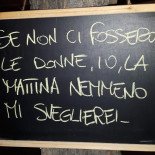 SE NON CI FOSSERO
LE DONNE, IO, LA
MATTINA NEMMENO
MI SVEGLIEREI_